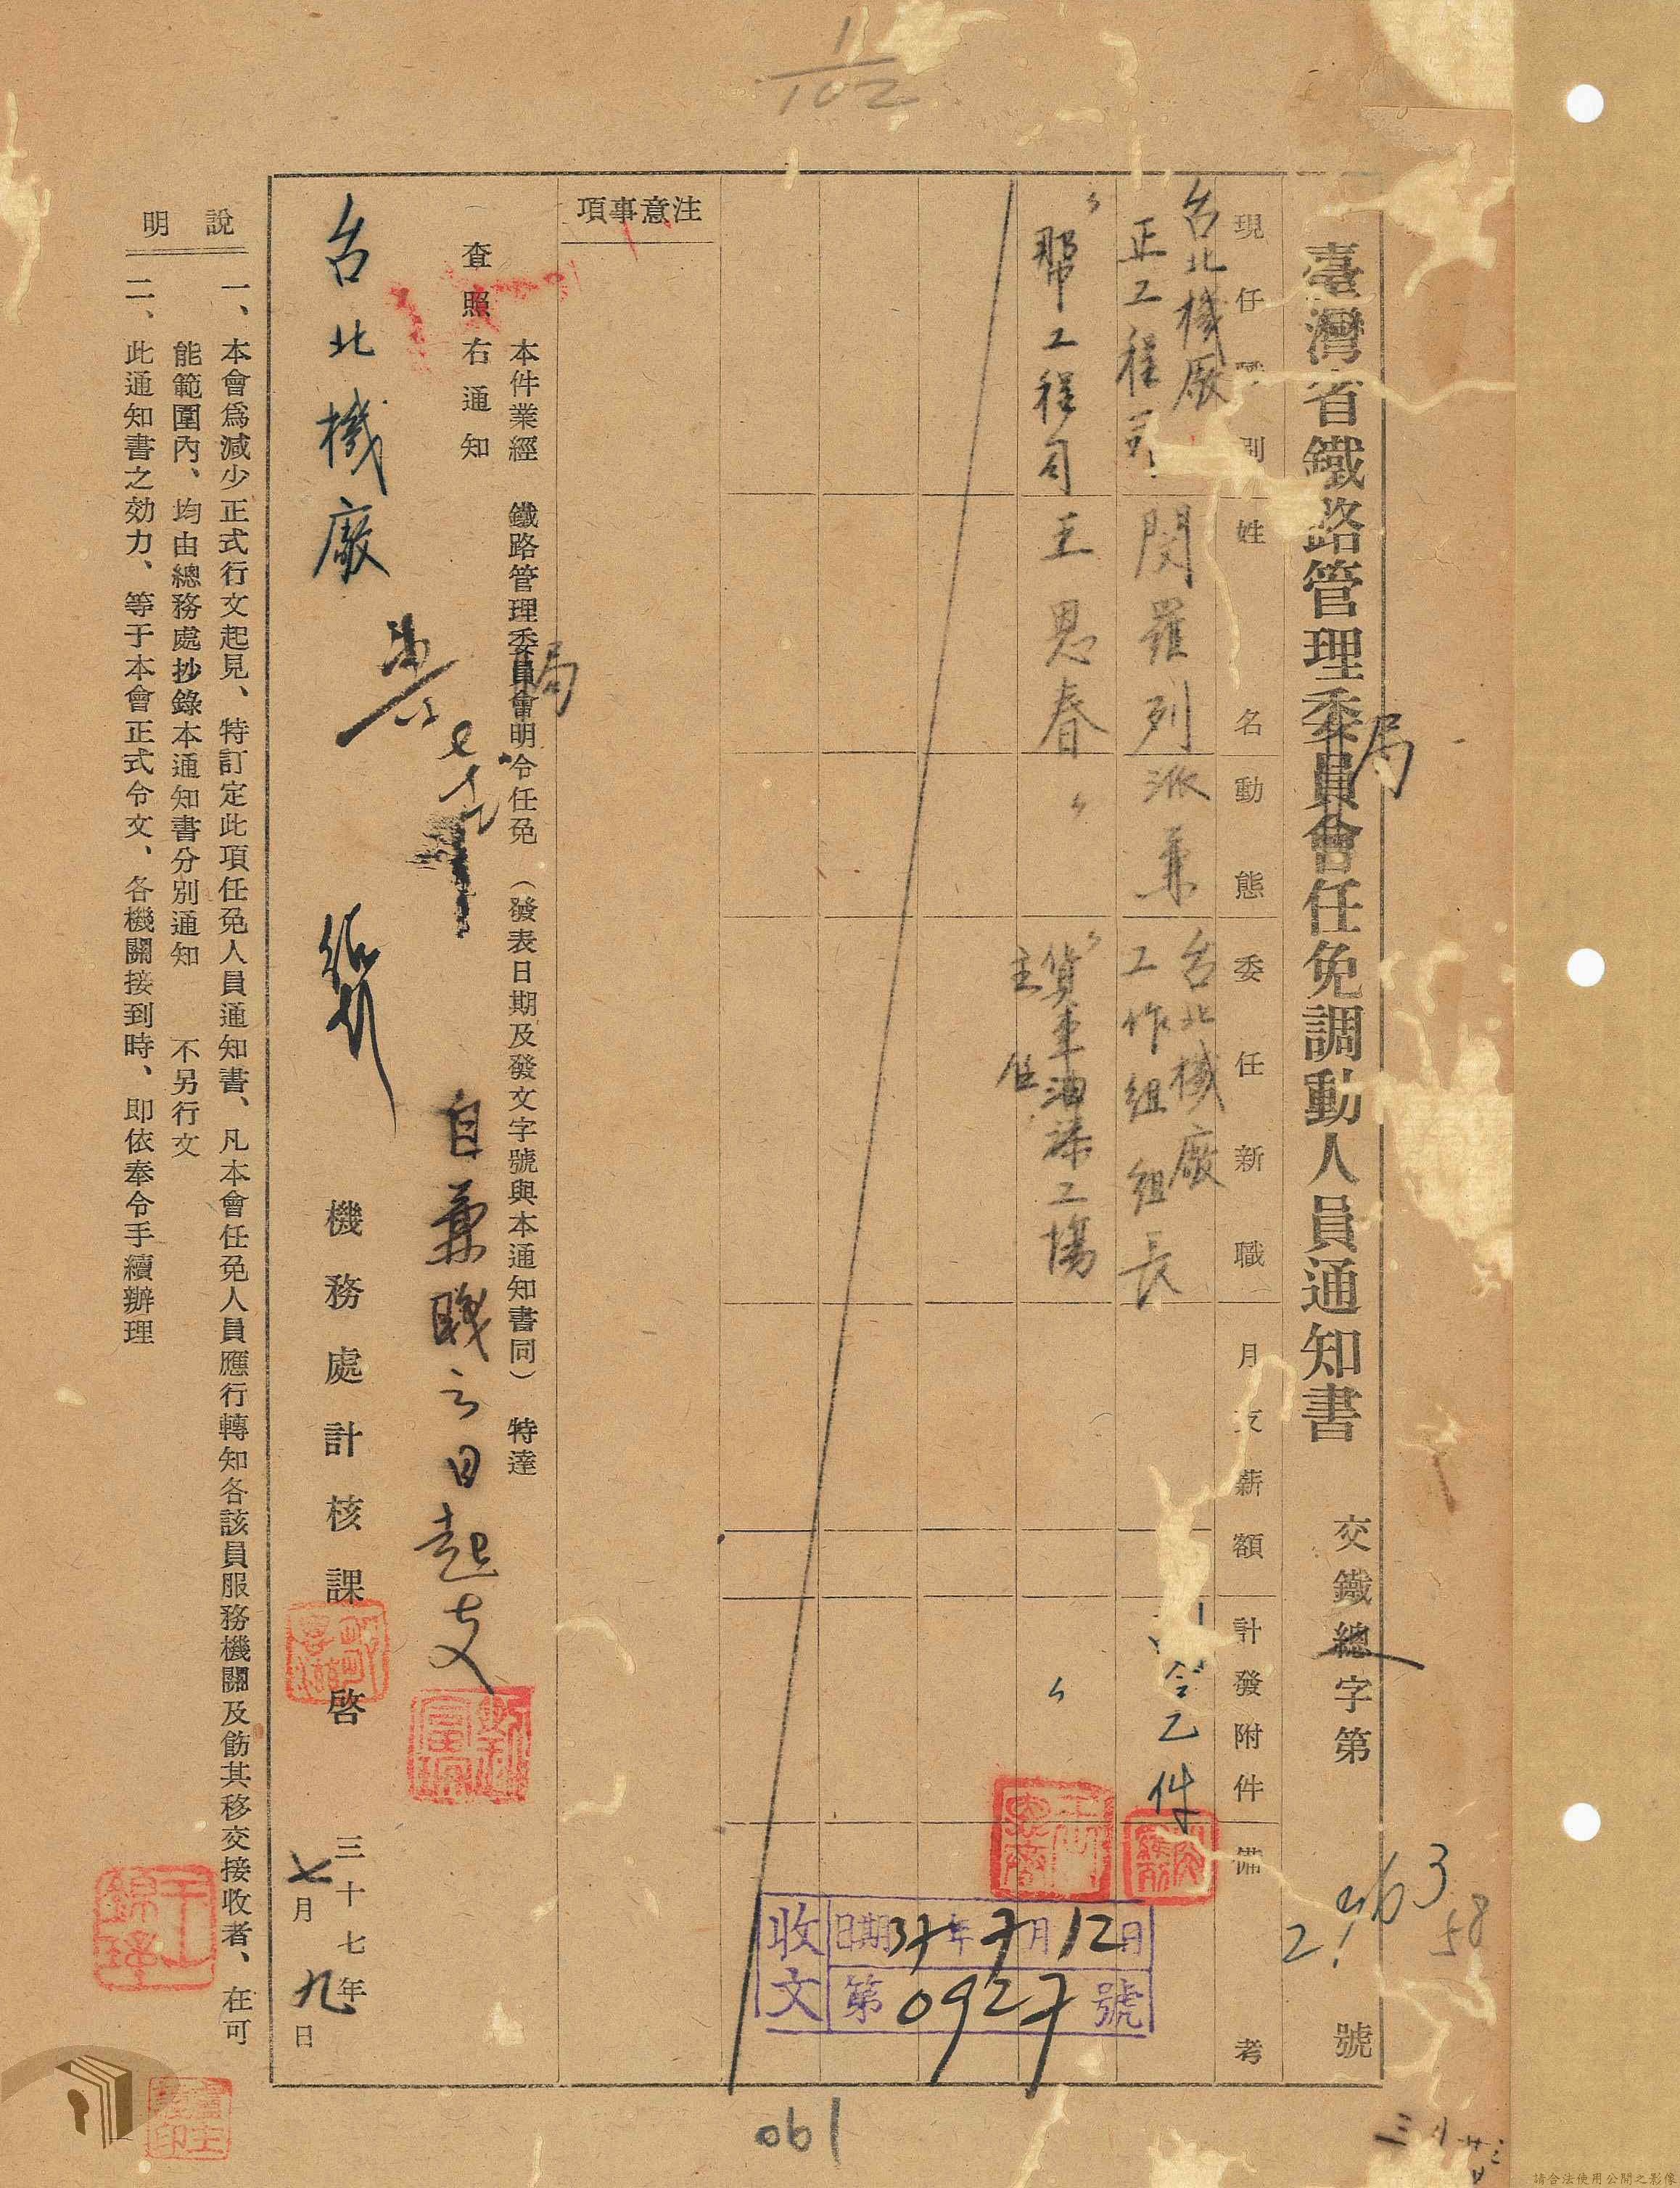 1/102
臺灣省鐵路管理委員會任免調動人員通知書
局
交鐵總字第 號
現任職別 姓名 動態 委任新職 月支薪額 計發附件 備考
台北機廠
正工程司 閔羅列 派兼 台北機廠
工作組組長
令乙件
〃
幫工程司 王思春 〃 〃
貨車油漆工場
主任
〃
注意事項
本件業經 鐵路管理委員會明令任免 (發表日期及發文字號與本通知書同) 特達
局
查照右通知
自兼職之日起支
台北機廠
機務處計核課啓
三十七年
七月九日
說明
一、本會爲減少正式行文起見、特訂定此項任免人員通知書、凡本會任免人員應行轉知各該員服務機關及飭其移交接收者、在可
能範圍內、均由總務處抄錄本通知書分別通知 不另行文
二、此通知書之効力、等于本會正式令文、各機關接到時、即依奉令手續辦理
收文
日期37年7月12日
第0927號
58
061
請合法使用公開之影像